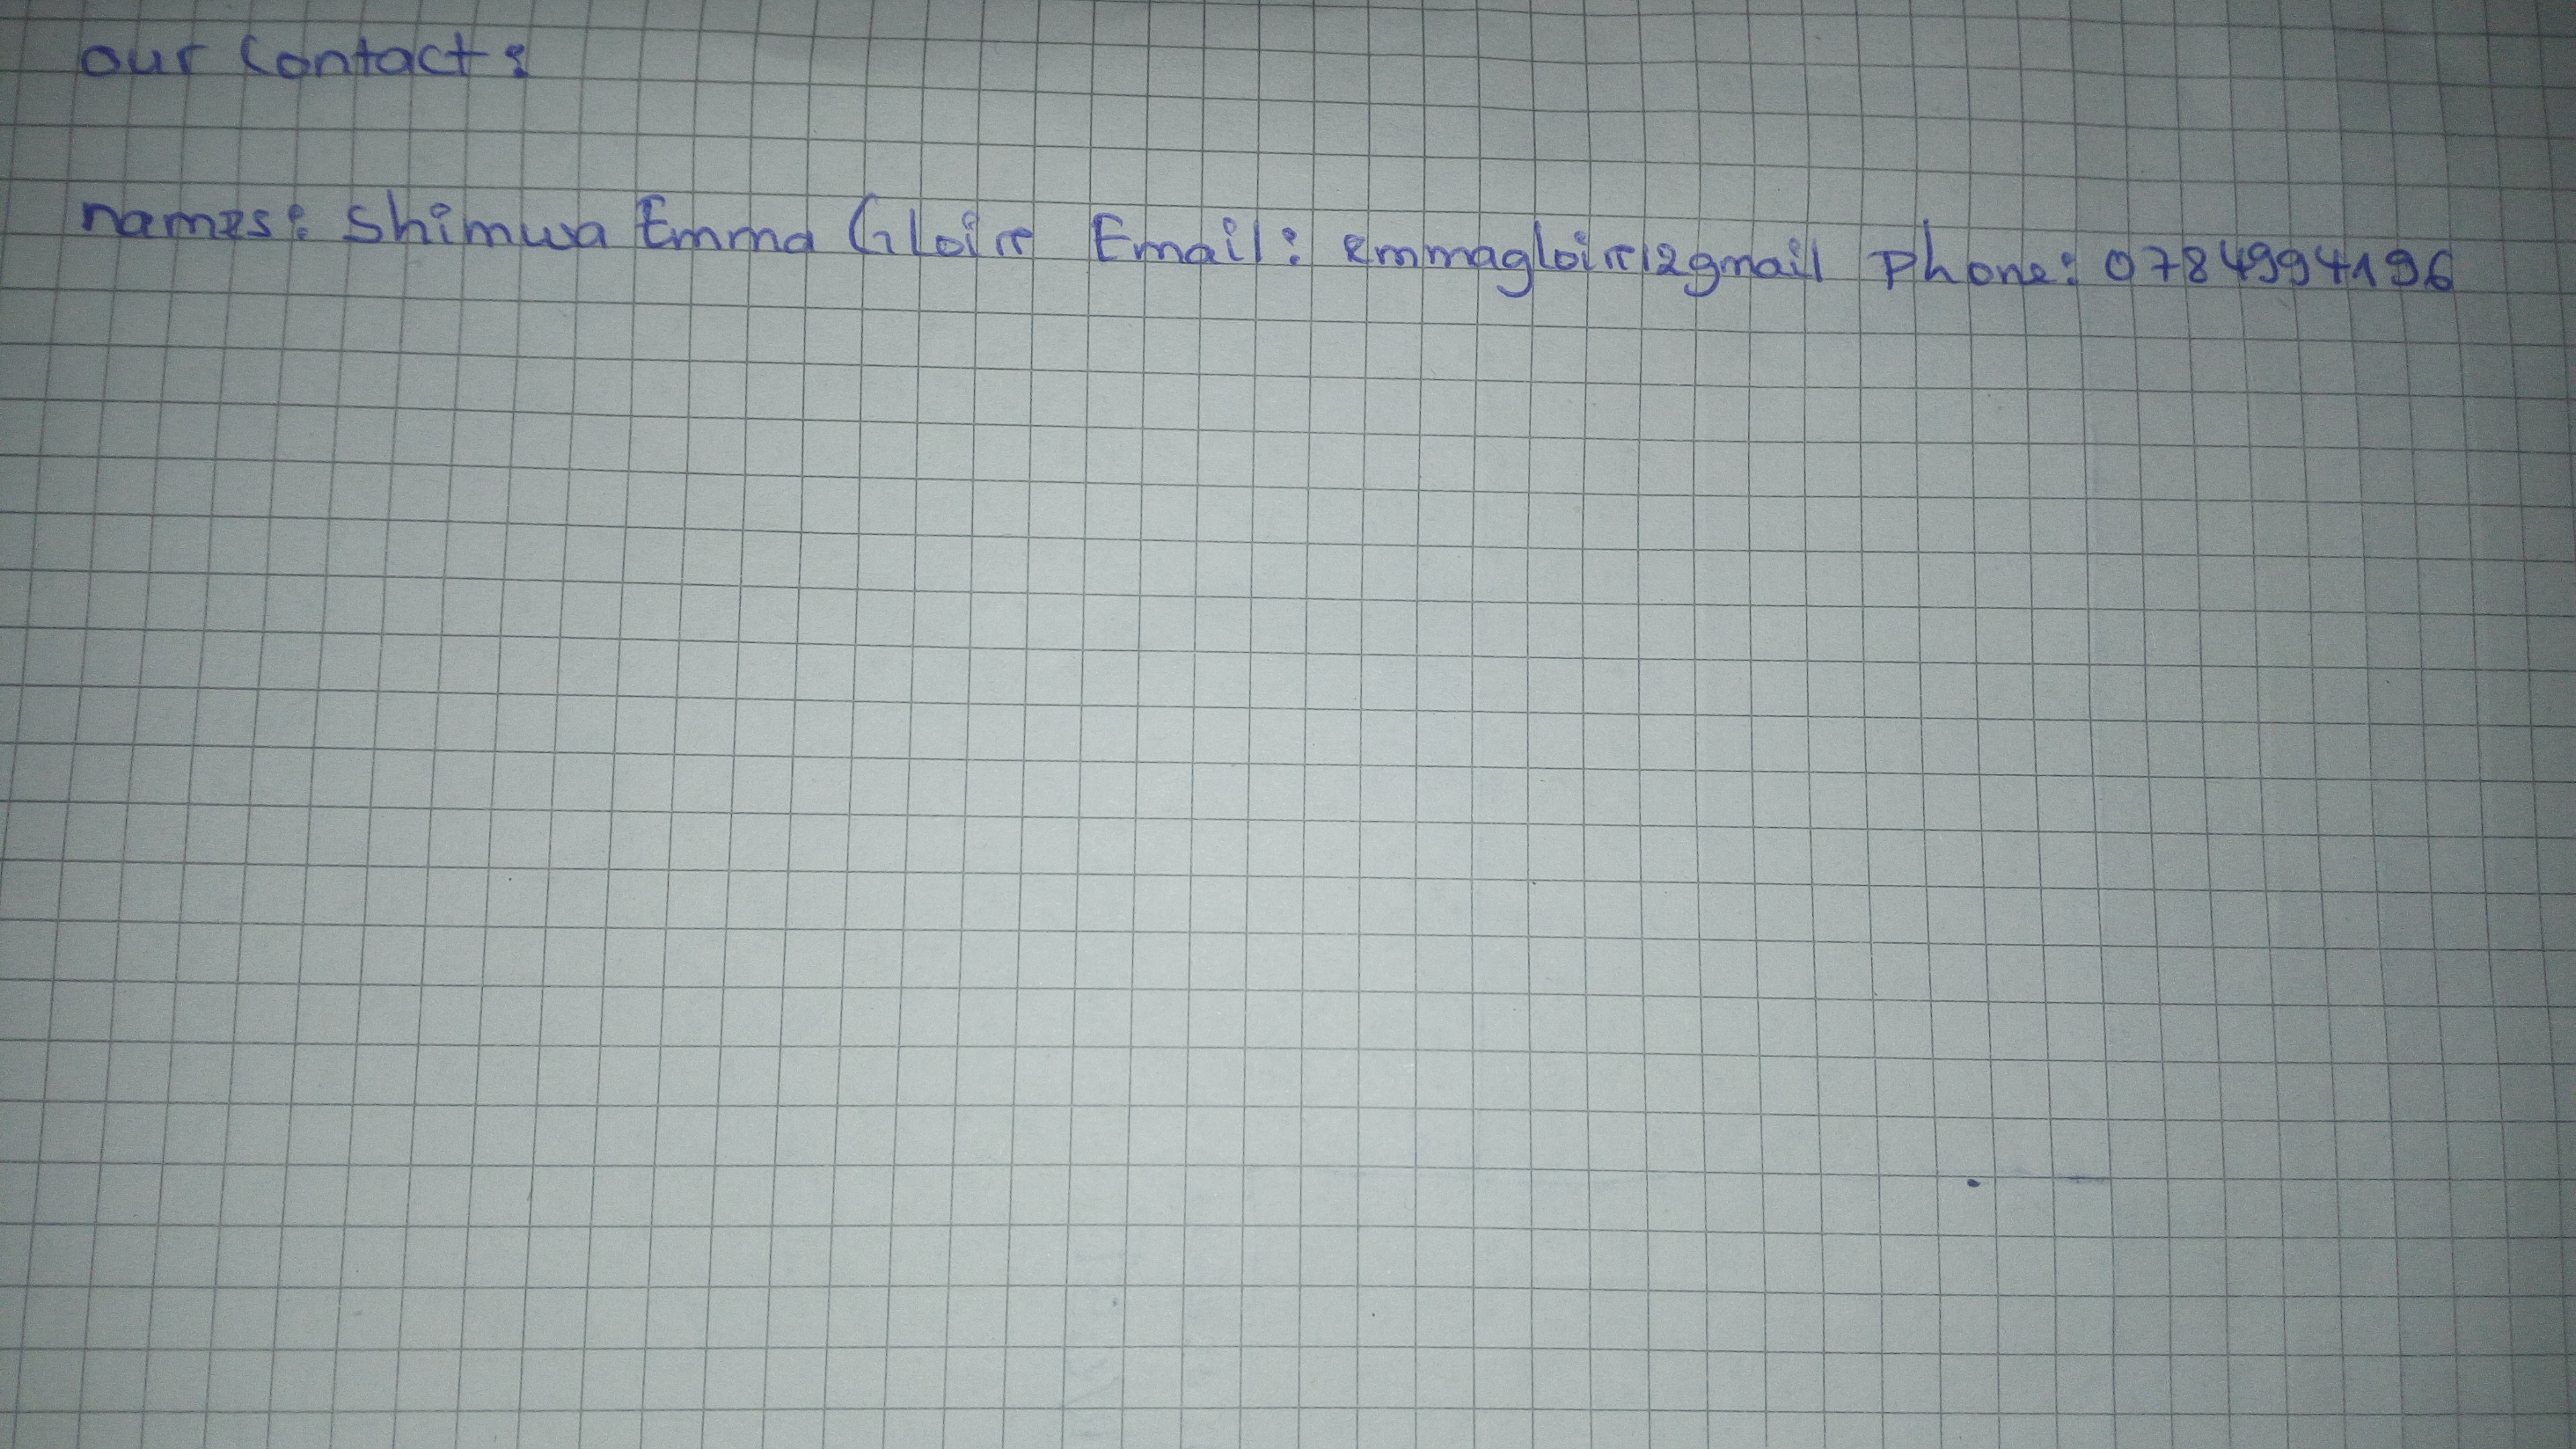 our contact:
names: Shimwa Emma Gloire Email: emmagloire12gmail Phone: 0784994196